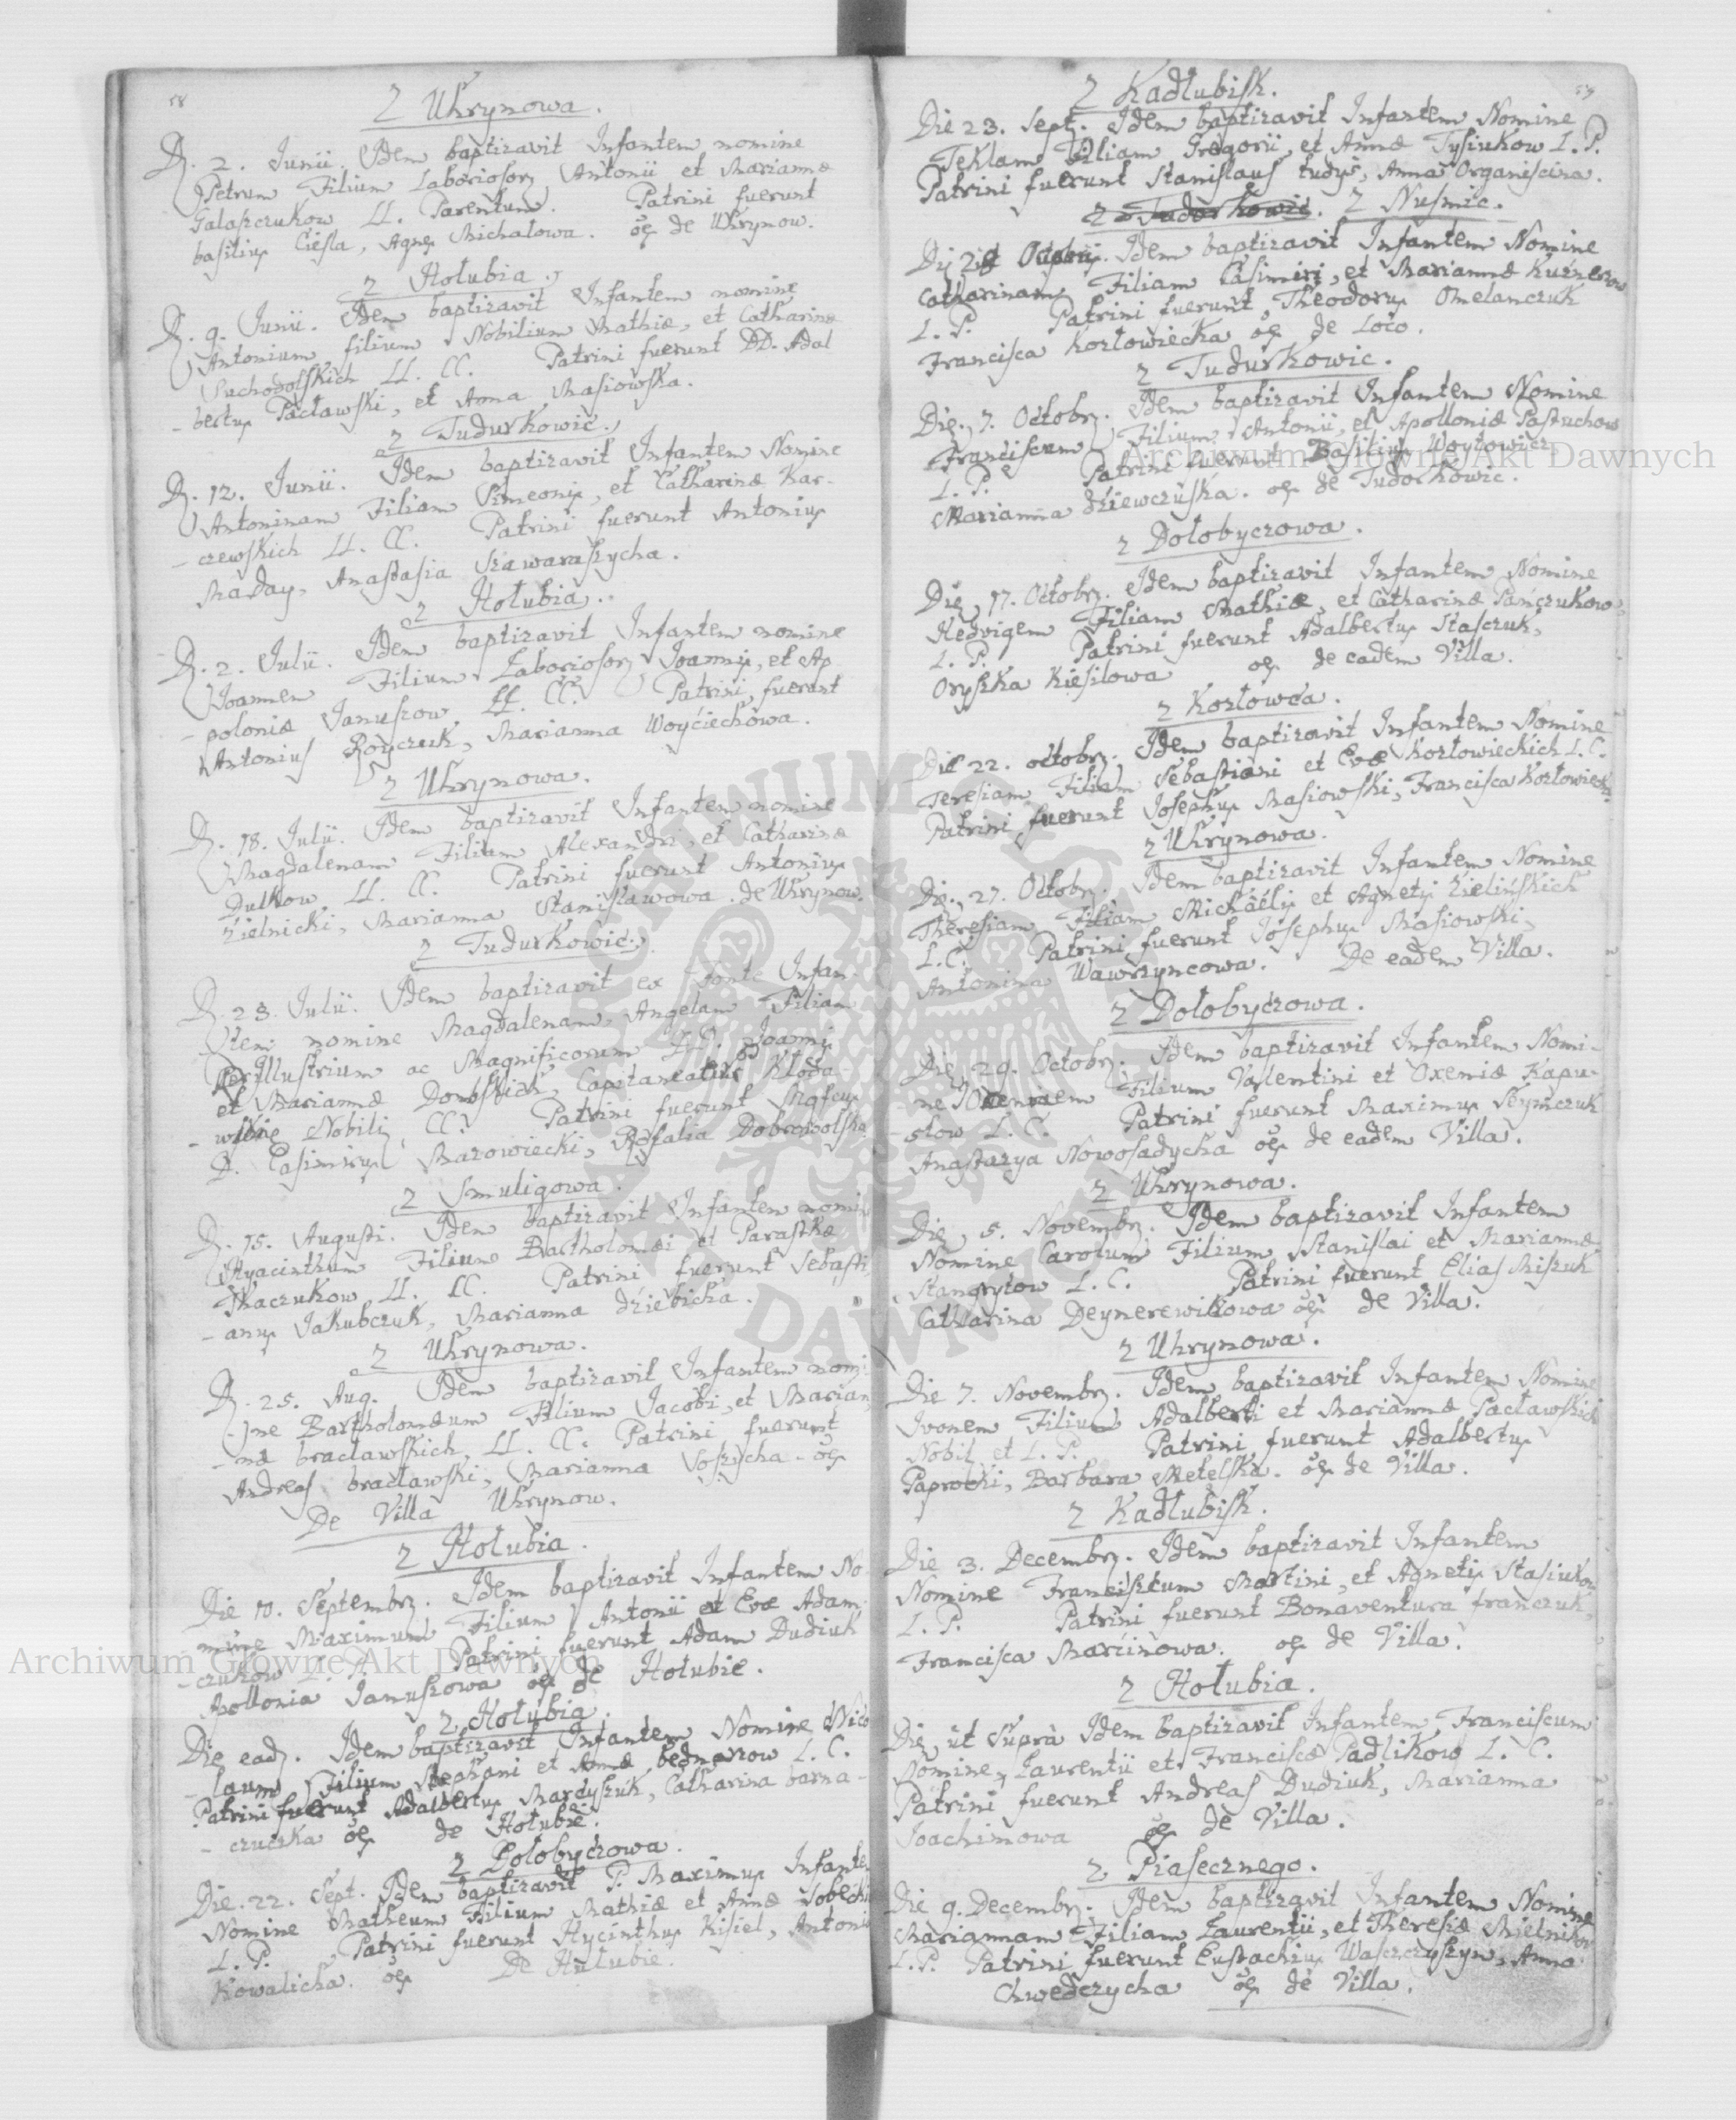 58
Z Uhrynowa.
D. 2. Junii. Idem baptizavit Infantem nomine
Petrum Filium Laboriosor Antonii et Mariannæ
Galaszczukow LL. Parentum. Patrini fuerunt
basilius Ciesla, Agnes Michałowa. oes de Uhrynow.
Z Hołubia.
D. 9. Junii. Idem baptizavit Infantem nomine
Antonium filium Nobilium Mathiæ, et Catharinæ
Suchodolskich LL. CC. Patrini fuerunt DD. Adal
-bertus Pacławski, et Anna Masiowska.
Z Tudurkowic.
D. 12. Junii. Idem baptizavit Infantem Nomine
Antoninam Filiam Simeonis, et Catharinæ Kar-
-czewskich LL. CC. Patrini fuerunt Antonius
Maday, Anastasia Szawaraszycha.
Z Hołubia.
D. 2. Julii. Idem baptizavit Infantem nomine
Joannem Filium Laboriosor Joannis, et Ap
-poloniæ Januszow LL. CC. Patrini fuerunt
Antonius Royczuk, Marianna Woyciechowa.
Z Uhrynowa.
D. 18. Julii. Idem baptizavit Infantem nomine
Magdalenam Filiam Alexandri, et Catharinæ
Dutkow LL. CC. Patrini fuerunt Antonius
Zielnicki, Marianna Stanisławowa. de Uhrynow.
Z Tudurkowic.
D. 23. Julii. Idem baptizavit ex Fonte Infan-
tem nomine Magdalenam, Angelam Filiam
PerIllustrium ac Magnificorum DD. Joannis
et Mariannæ Dombskich, Capitaneatus Kłoda
Nobilis CC. Patrini fuerunt Mgfcus
D. Casimirus Mazowiecki, Rosalia Dobrowolska
Z Smuligowa.
D. 15. Augusti. Idem baptizavit Infantem nomin
Hyacinthum Filium Bartholomæi et Paraskæ
Tkaczukow LL. CC. Patrini fuerunt Sebasti
-anus Jakubczuk, Marianna dziebicha.
Z Uhrynowa.
D. 25. Aug. Idem baptizavit Infantem nomi
-ne Bartholomæum Filium Jacobi, et Marian
-næ bracławskich, LL. CC. Patrini fuerunt
Andreas bracławski, Marianna Soszycha - oes
De Villa Uhrynow.
Z Hołubia.
Die 10. Septembr. Idem baptizavit Infantem No
mine Maximum Filium Antonii et Evæ Adam
-czukow L. P. Patrini fuerunt Adam Dudiuk
Apollonia Januszowa oes de Hołubie.
Z Hołubia.
Die ead. Idem baptizavit Infantem Nomine Nico
-laum Filium Stephani et Annæ bednarzow L. C.
Patrini fuerunt Adalbertus Mardyszuk, Catharina barna-
-czuczka oes de Hołubie.
Z Dołobyczowa.
Die. 22. Sept. Idem baptizavit P. Maximus Infante
Nomine Matheum Filium Mathiæ et Annæ Sobecki
L. P. Patrini fuerunt Hycinthus Kisiel, Antoni
Kowalicha. oes De Hulubie.
59
Z Kadłubisk.
Die 23. Sept. Idem baptizavit Infantem Nomine
Teklam Filiam Gregorii, et Annæ Tysiukow L. P.
Patrini fuerunt Stanislaus tudys, Anna Organiscina.
Z Tudorkowic. Z Nusmic.
Idem baptizavit Infantem Nomine
Catharinam Filiam Casimiri, et Mariannæ Kuznerow
L. P. Patrini fuerunt, Theodorus Omelanczuk
Francisca Kozłowiecka oes de Loco.
Z Tudurkowic.
Die. 7. Octobr. Idem baptizavit Infantem Nomine
Franciscum Filium Antonii, et Apolloniæ Pastuchow
L. P. Patrini fuerunt Basilius Woytowicz,
Marianna dziewczuska. oes de Tudorkowic.
Z Dołobyczowa.
Die, 17. Octobr. Idem baptizavit Infantem Nomine
Hedvigem Filiam Mathiæ, et Catharinæ Panczukow
L. P. Patrini fuerunt Adalbertus Stasczuk,
Oryszka Kiesilowa oes de eadem Villa.
Z Kozłowca.
Die 22. octobr. Idem baptizavit Infantem Nomine
Teresiam Filiam Sebastiani et Evæ Kozłowieckich L. C.
Patrini fuerunt Josephus Masiowski, Francisca Kozłowiecka.
Z Uhrynowa.
Die, 27. Octobr. Idem baptizavit Infantem Nomine
Theresiam Filiam Michaelis et Agnetis Zielinskich
L. C. Patrini fuerunt Josephus Masiowski,
Antonina Wawrzyncowa. De eadem Villa.
Z Dołobyczowa.
Die 29. Octobr. Idem baptizavit Infantem Nomi-
-ne Filium Valentini et Oxeniæ Kapu-
-stow L. C. Patrini fuerunt Maximus Seymczuk
Anastazya Nowosadycha oes de eadem Villa.
Z Uhrynowa.
Die, 5. Novembr. Idem baptizavit Infantem
Nomine Carolum Filium Stanislai et Mariannæ
Stangrytow L. C. Patrini fuerunt Elias Miszuk
Catharina Deynerewikowa oes de Villa.
Z Uhrynowa.
Die 7. Novembr. Idem baptizavit Infantem Nomine
Ivonem Filium Adalberti et Mariannæ Pacławskich
Nobil. et L. P. Patrini fuerunt Adalbertus
Paprocki, Barbara Metelska. oes de Villa.
Z Kadłubisk.
Die 3. Decembr. Idem baptizavit Infantem
Nomine Franciszkum Martini, et Agnetis Stasiukow
L. P. Patrini fuerunt Bonaventura franczuk,
Francisca Marcinowa. oes de Villa.
Z Hołubia.
Die ut Supra Idem baptizavit Infantem Franciscum
Nomine, Laurentii et Franciscæ Padlikow L. C.
Patrini fuerunt Andreas Dudiuk, Marianna
Joachimowa oes de Villa.
Z Piasecznego.
Die 9. Decembr. Idem baptizavit Infantem Nomine
Mariannam Filiam Laurentii, et Theresiæ Mielnikow
L. P. Patrini fuerunt Eustachius Waszczyszyn, Anna
Chwedczycha oes de Villa.
Archiwum Główne Akt Dawnych
Archiwum Główne Akt Dawnych
ARCHIWUM GŁÓWNE AKT DAWNYCH